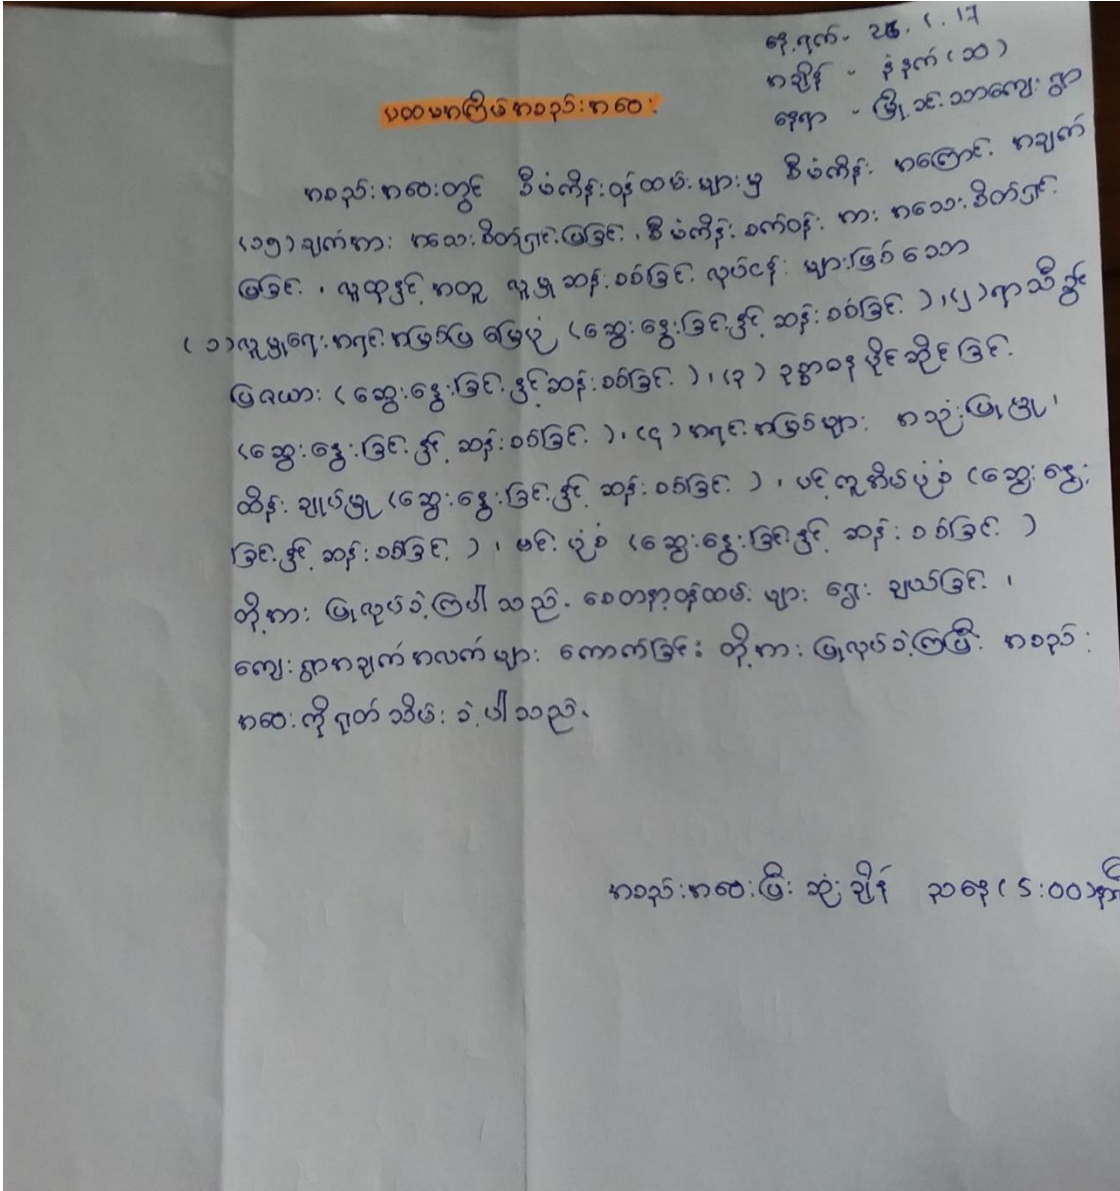 နေ့ရက် - 26.1.17
အချိန် - နံနက် (၁၀)
နေရာ - မြို့ သာကျေးရွာ
ပထမအကြိမ်အစည်းအဝေး
အစည်းအဝေးတွင် စီမံကိန်းဝန်ထမ်းများမှ စီမံကိန်း အကြောင်း အချက်
(၁၅) ချက်အား အသေးစိတ်ရှင်းပြခြင်း၊ စီမံကိန်း စက်ဝန်း အား အသေးစိတ်ရှင်း
ပြခြင်း၊ လူထုနှင့် အတူ လူမှု ဆန်းစစ်ခြင်း လုပ်ငန်း များဖြစ် သော
(၁) လူမှုရေး အရင်းအမြစ်ပြ မြေပုံ (ဆွေးနွေးခြင်းနှင့် ဆန်းစစ်ခြင်း)၊ (၂) ရာသီခွင်
ပြဇယား (ဆွေးနွေးခြင်းနှင့် ဆန်းစစ်ခြင်း)၊ (၃) ဥစ္စာဓန ပိုင်ဆိုင်ခြင်း
(ဆွေးနွေးခြင်းနှင့် ဆန်းစစ်ခြင်း)၊ (၄) အရင်းအမြစ်များ အသုံးပြုမှု၊
ထိန်းချုပ်မှု (ဆွေးနွေးခြင်းနှင့် ဆန်းစစ်ခြင်း)၊ ပင့်ကူအိမ်ပုံစံ (ဆွေးနွေး
ခြင်းနှင့် ဆန်းစစ်ခြင်း)၊ ပုံစံ (ဆွေးနွေးခြင်းနှင့် ဆန်းစစ်ခြင်း)
တို့အား ပြုလုပ်ခဲ့ကြပါသည်. စေတနာ့ဝန်ထမ်းများ ရွေးချယ်ခြင်း၊
ကျေးရွာအချက်အလက်များ ကောက်ခြင်း တို့အား ပြုလုပ်ခဲ့ကြပြီး အစည်း
အဝေးကို ရုတ်သိမ်းခဲ့ပါသည်.
အစည်းအဝေးပြီးဆုံးချိန် ညနေ (5:00) နာရီ